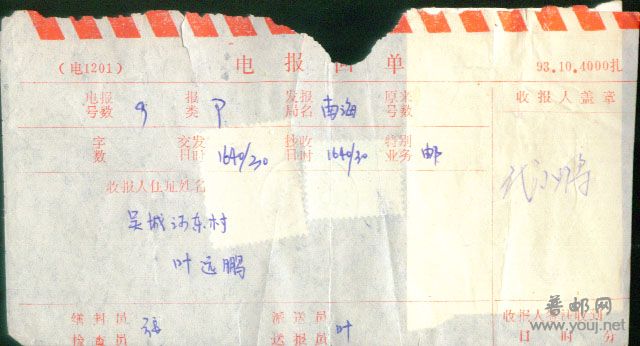 （电1201） 电报回单 93.10.4000扎
电报号数 9 报类 P 发报局名 南海 原来号数 收报人盖章
字数 交发日时 1640/30 抄收日时 1640/30 特别业务 邮
收报人住址姓名
吴城河东村
叶远鹏
缮封员 派送员 叶 收报人签收时
检查员 送报员 日 时 分
普邮网
www.youj.net